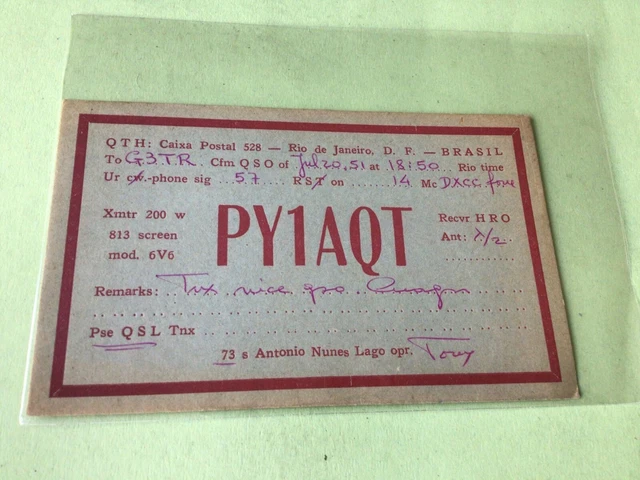 QTH: Caixa Postal 528 — Rio de Janeiro, D. F. — BRASIL
To G3TR Cfm QSO of Jul 20, 51 at 18:50 Rio time
Ur cw.-phone sig 57 RST on 14 Mc DXCC fone
Xmtr 200 w
813 screen
mod. 6V6
PY1AQT
Recvr HRO
Ant: λ/2
Remarks: Tnx nice qso
Pse QSL Tnx
73 s Antonio Nunes Lago opr. Tony